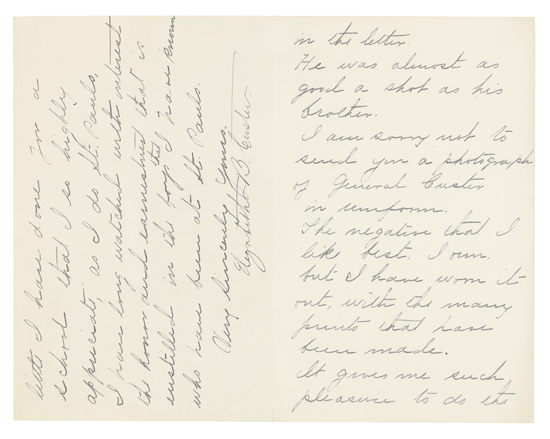 in the letter.
He was almost as
good a shot as his
brother.
I am sorry not to
send you a photograph
of General Custer
in uniform.
The negative that I
like best, I own.
but I have worn it
out, with the many
prints that have
been made.
It gives me such
pleasure to do the
little I have done for a
school that I so highly
appreciate, as I do St. Pauls.
I have long watched with interest
the honor and earnestness that is
enstilled in the boys that I have known
who have been at St. Pauls.
Very sincerely yours,
Elizabeth B. Custer.